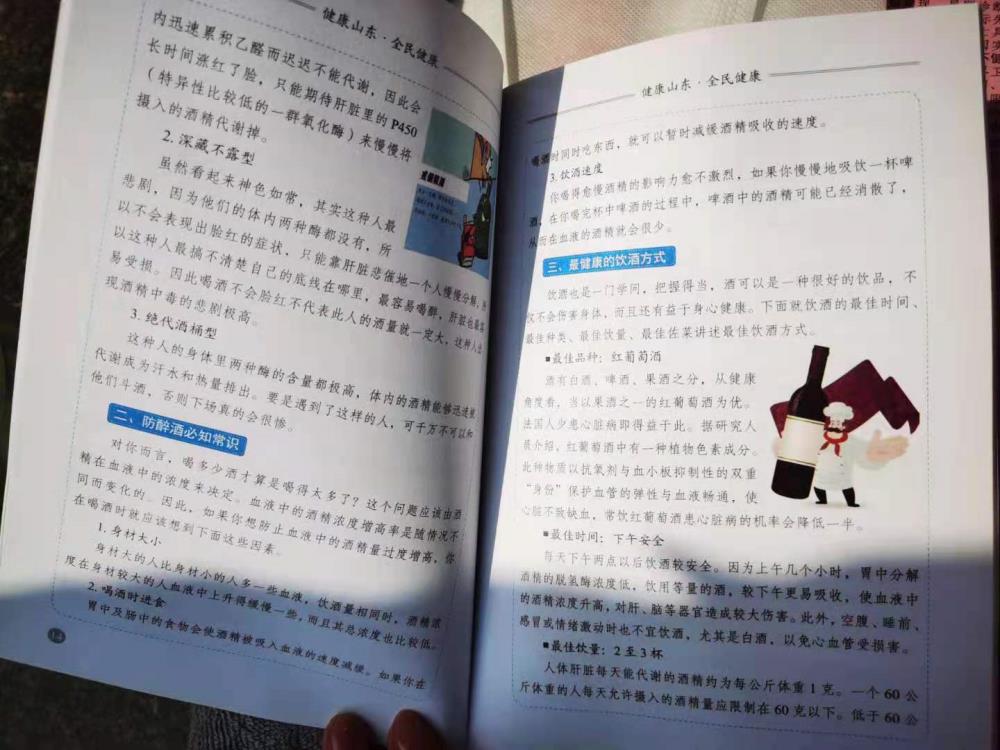 健康山东·全民健康
内迅速累积乙醛而迟迟不能代谢，因此会
长时间涨红了脸，只能期待肝脏里的 P450
（特异性比较低的一群氧化酶）来慢慢将
摄入的酒精代谢掉。
2. 深藏不露型
虽然看起来神色如常，其实这种人最
悲剧，因为他们的体内两种酶都没有，所
以不会表现出脸红的症状，只能靠肝脏悲催地一个人慢慢分解，所
以这种人最搞不清楚自己的底线在哪里，最容易喝醉，肝脏也最容
易受损。因此喝酒不会脸红不代表此人的酒量就一定大，这种人出
现酒精中毒的悲剧极高。
3. 绝代酒桶型
这种人的身体里两种酶的含量都极高，体内的酒精能够迅速被
代谢成为汗水和热量排出。要是遇到了这样的人，可千万不可以和
他们斗酒，否则下场真的会很惨。
二、防醉酒必知常识
对你而言，喝多少酒才算是喝得太多了？这个问题应该由酒
精在血液中的浓度来决定。血液中的酒精浓度增高率是随情况不
同而变化的。因此，如果你想防止血液中的酒精量过度增高，你
在喝酒时就应该想到下面这些因素。
1. 身材大小
身材大的人比身材小的人多一些血液，饮酒量相同时，酒精浓
度在身材较大的人血液中上升得缓慢一些，而且其总浓度也比较低。
2. 喝酒时进食
胃中及肠中的食物会使酒精被吸入血液的速度减慢。如果你在
14
健康山东·全民健康
喝酒时同时吃东西，就可以暂时减缓酒精吸收的速度。
3. 饮酒速度
你喝得愈慢酒精的影响力愈不激烈，如果你慢慢地吸饮一杯啤
酒，在你喝完杯中啤酒的过程中，啤酒中的酒精可能已经消散了，
从而在血液的酒精就会很少。
三、最健康的饮酒方式
饮酒也是一门学问，把握得当，酒可以是一种很好的饮品，不
仅不会伤害身体，而且还有益于身心健康。下面就饮酒的最佳时间、
最佳种类、最佳饮量、最佳佐菜讲述最佳饮酒方式。
■最佳品种：红葡萄酒
酒有白酒、啤酒、果酒之分，从健康
角度看，当以果酒之一的红葡萄酒为优。
法国人少患心脏病即得益于此。据研究人
员介绍，红葡萄酒中有一种植物色素成分。
此种物质以抗氧剂与血小板抑制性的双重
“身份”保护血管的弹性与血液畅通，使
心脏不致缺血，常饮红葡萄酒患心脏病的机率会降低一半。
■最佳时间：下午安全
每天下午两点以后饮酒较安全。因为上午几个小时，胃中分解
酒精的脱氢酶浓度低，饮用等量的酒，较下午更易吸收，使血液中
的酒精浓度升高，对肝、脑等器官造成较大伤害。此外，空腹、睡前、
感冒或情绪激动时也不宜饮酒，尤其是白酒，以免心血管受损害。
■最佳饮量：2 至 3 杯
人体肝脏每天能代谢的酒精约为每公斤体重 1 克。一个 60 公
斤体重的人每天允许摄入的酒精量应限制在 60 克以下。低于 60 公